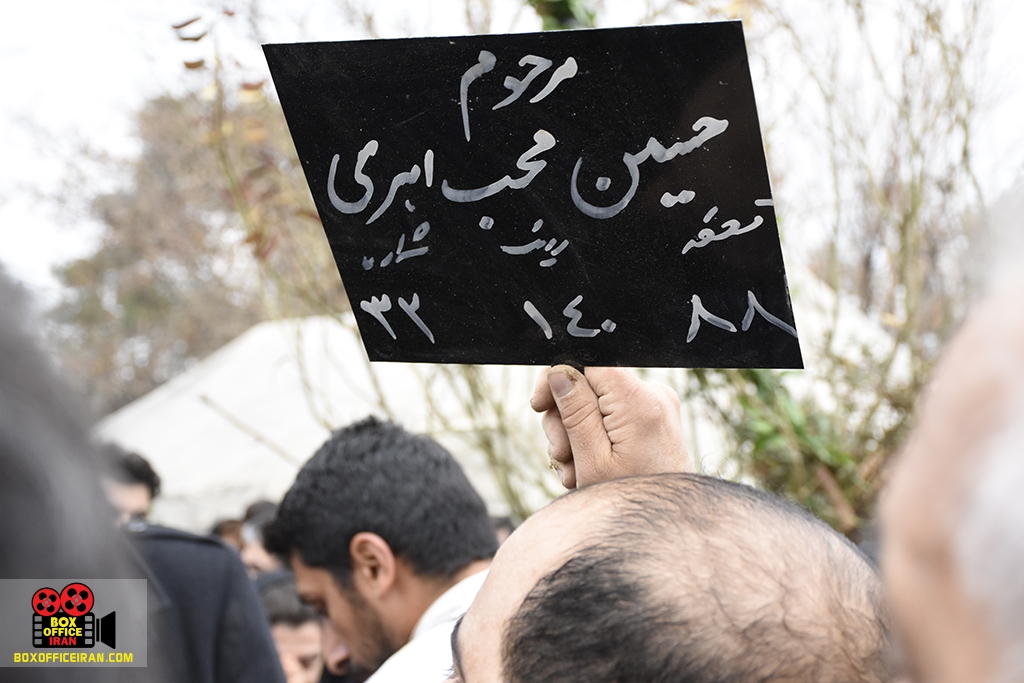 مرحوم
حسین محب اهری
قطعه ردیف شماره
۸۸ ۱۴۰ ۳۲
BOX
OFFICE
IRAN
BOXOFFICEIRAN.COM